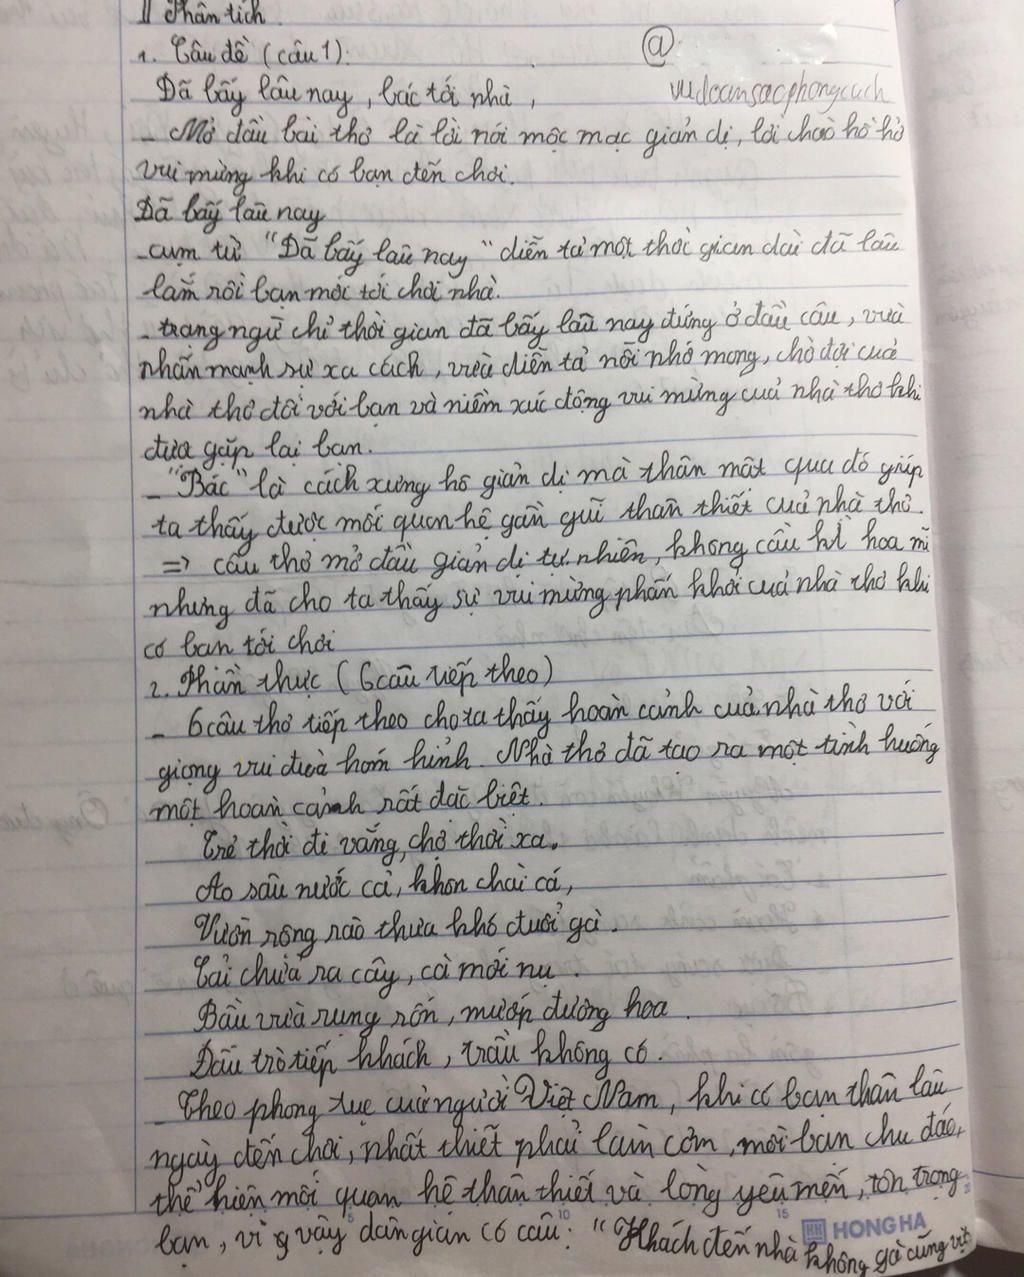 II Phân tích.
1. Câu đề (câu 1):
@
Đã bấy lâu nay, bác tới nhà,
vudoansaophongcach
- Mở đầu bài thơ là lời nói mộc mạc giản dị, lời chào hồ hở
vui mừng khi có bạn đến chơi.
Đã bấy lâu nay
- cụm từ "Đã bấy lâu nay" diễn tả một thời gian dài đã lâu
lắm rồi bạn mới tới chơi nhà.
- trạng ngữ chỉ thời gian đã bấy lâu nay đứng ở đầu câu, vừa
nhấn mạnh sự xa cách, vừa diễn tả nỗi nhớ mong, chờ đợi của
nhà thơ đối với bạn và niềm xúc động vui mừng của nhà thơ khi
đựa gặp lại bạn.
- "Bác" là cách xưng hô giản dị mà thân mật qua đó giúp
ta thấy được mối quan hệ gần gũi thân thiết của nhà thơ.
=> câu thơ mở đầu giản dị tự nhiên, không cầu kì hoa mĩ
nhưng đã cho ta thấy sự vui mừng phấn khởi của nhà thơ khi
có bạn tới chơi
2. Phần thực (6 câu tiếp theo)
- 6 câu thơ tiếp theo cho ta thấy hoàn cảnh của nhà thơ với
giọng vui đùa hóm hỉnh. Nhà thơ đã tạo ra một tình huống
một hoàn cảnh rất đặc biệt.
Trẻ thời đi vắng, chợ thời xa.
Ao sâu nước cả, khôn chài cá,
Vườn rộng rào thưa khó đuổi gà.
Cải chửa ra cây, cà mới nụ.
Bầu vừa rụng rốn, mướp đương hoa.
Đầu trò tiếp khách, trầu không có.
- Theo phong tục của người Việt Nam, khi có bạn thân lâu
ngày đến chơi, nhất thiết phải làm cơm, mời bạn chu đáo,
thể hiện mối quan hệ thân thiết và lòng yêu mến, tôn trọng
bạn, vì vậy dân gian có câu: "Khách đến nhà không gà cũng vịt
5 10 15 20
HH HONG HA